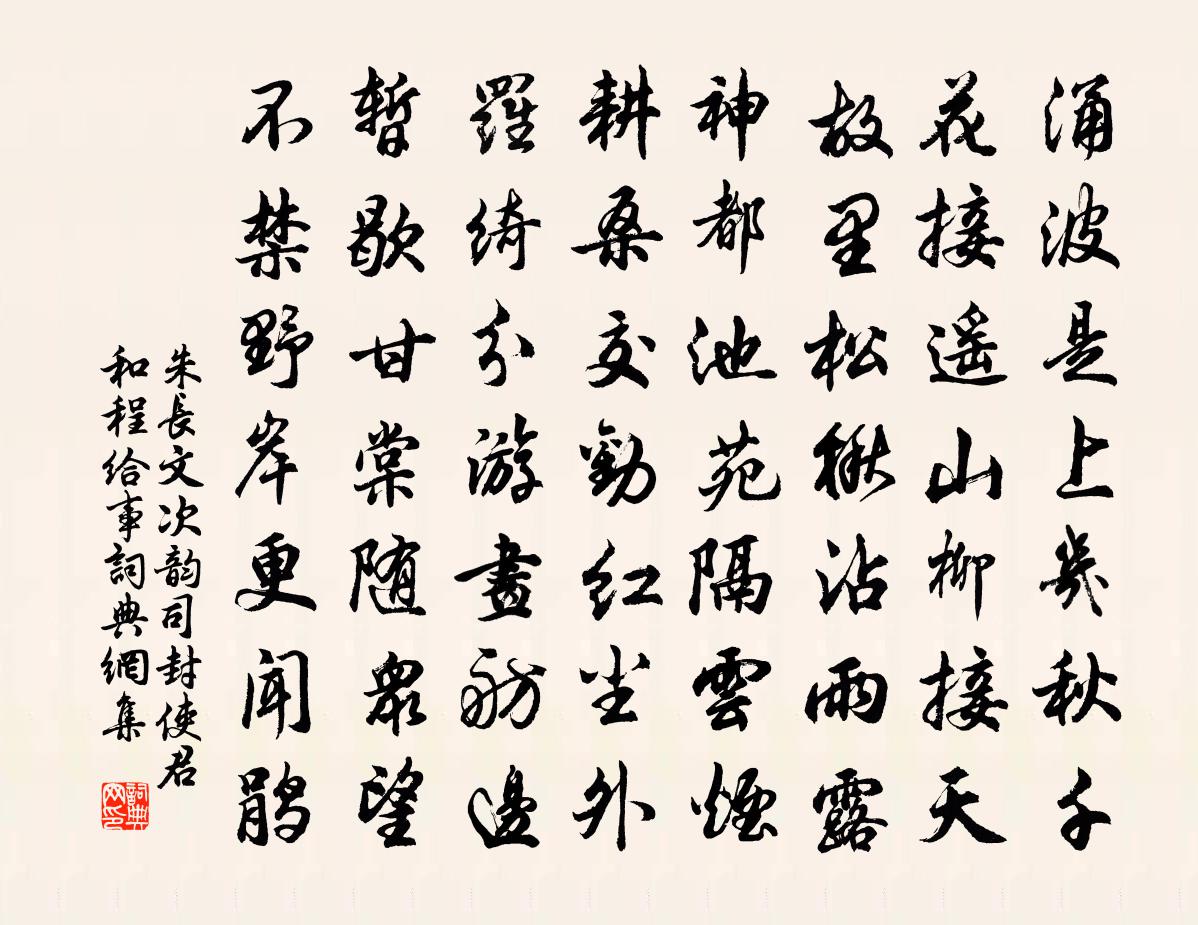 涌波是上几秋千
花接遥山柳接天
故里松楸沾雨露
神都池苑隔雲煙
耕桑交勸红尘外
羅綺分游畫舫邊
暫歇甘棠随眾望
不禁野岸更聞鹃
朱長文次韵司封使君
和程给事詞典網集
詞典网印